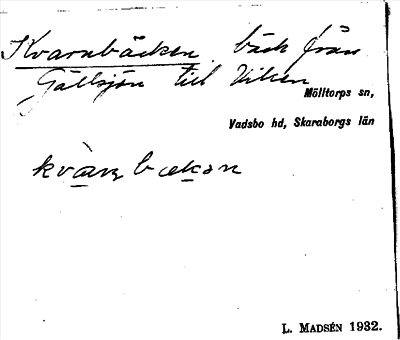 Kvarnbäcken bäck från
Gällsjön till Viken
Mölltorps sn,
Vadsbo hd, Skaraborgs län
kvàn̥bækən
L. MADSÉN 1932.